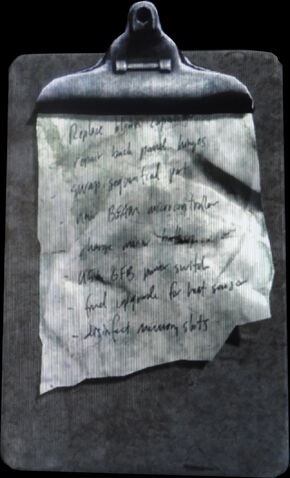 Replace blown capacitor
- repair back panel hinges
- swap sequential port
- new BEAM microcontroller
- change
- GFB power switch
- find upgrade for heat sensor
- disinfect memory slots